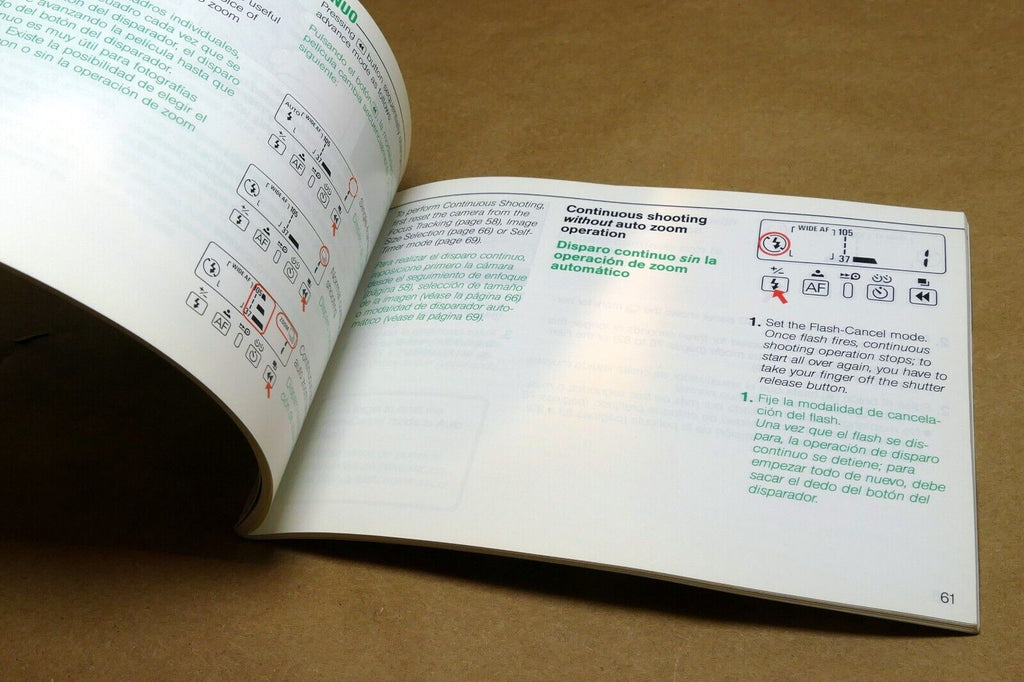 useful
oice of
o zoom
adros individuales,
cuadro cada vez que se
do del botón del disparador, el disparo
avanzando la película hasta que
nuo es muy útil para fotografías
Existe la posibilidad de elegir el
on o sin la operación de zoom
NUO
Pressing ◀◀ button
advance mode as follows.
Pulsando el botón
película cambia
siguiente.
AUTO
WIDE AF
105
L
37
AF
WIDE AF
105
L
37
AF
WIDE AF
105
L
37
AF
To perform Continuous Shooting,
first reset the camera from the
Focus Tracking (page 58), Image
Size Selection (page 66) or Self-
Timer mode (page 69).
Para realizar el disparo continuo,
reposicione primero la cámara
desde el seguimiento de enfoque
(página 58), selección de tamaño
de la imagen (véase la página 66)
o modalidad de disparador auto-
mático (véase la página 69).
Continuous shooting
without auto zoom
operation
Disparo continuo sin la
operación de zoom
automático
WIDE AF
105
L
37
1
AF
1. Set the Flash-Cancel mode.
Once flash fires, continuous
shooting operation stops; to
start all over again, you have to
take your finger off the shutter
release button.
1. Fije la modalidad de cancela-
ción del flash.
Una vez que el flash se dis-
para, la operación de disparo
continuo se detiene; para
empezar todo de nuevo, debe
sacar el dedo del botón del
disparador.
61